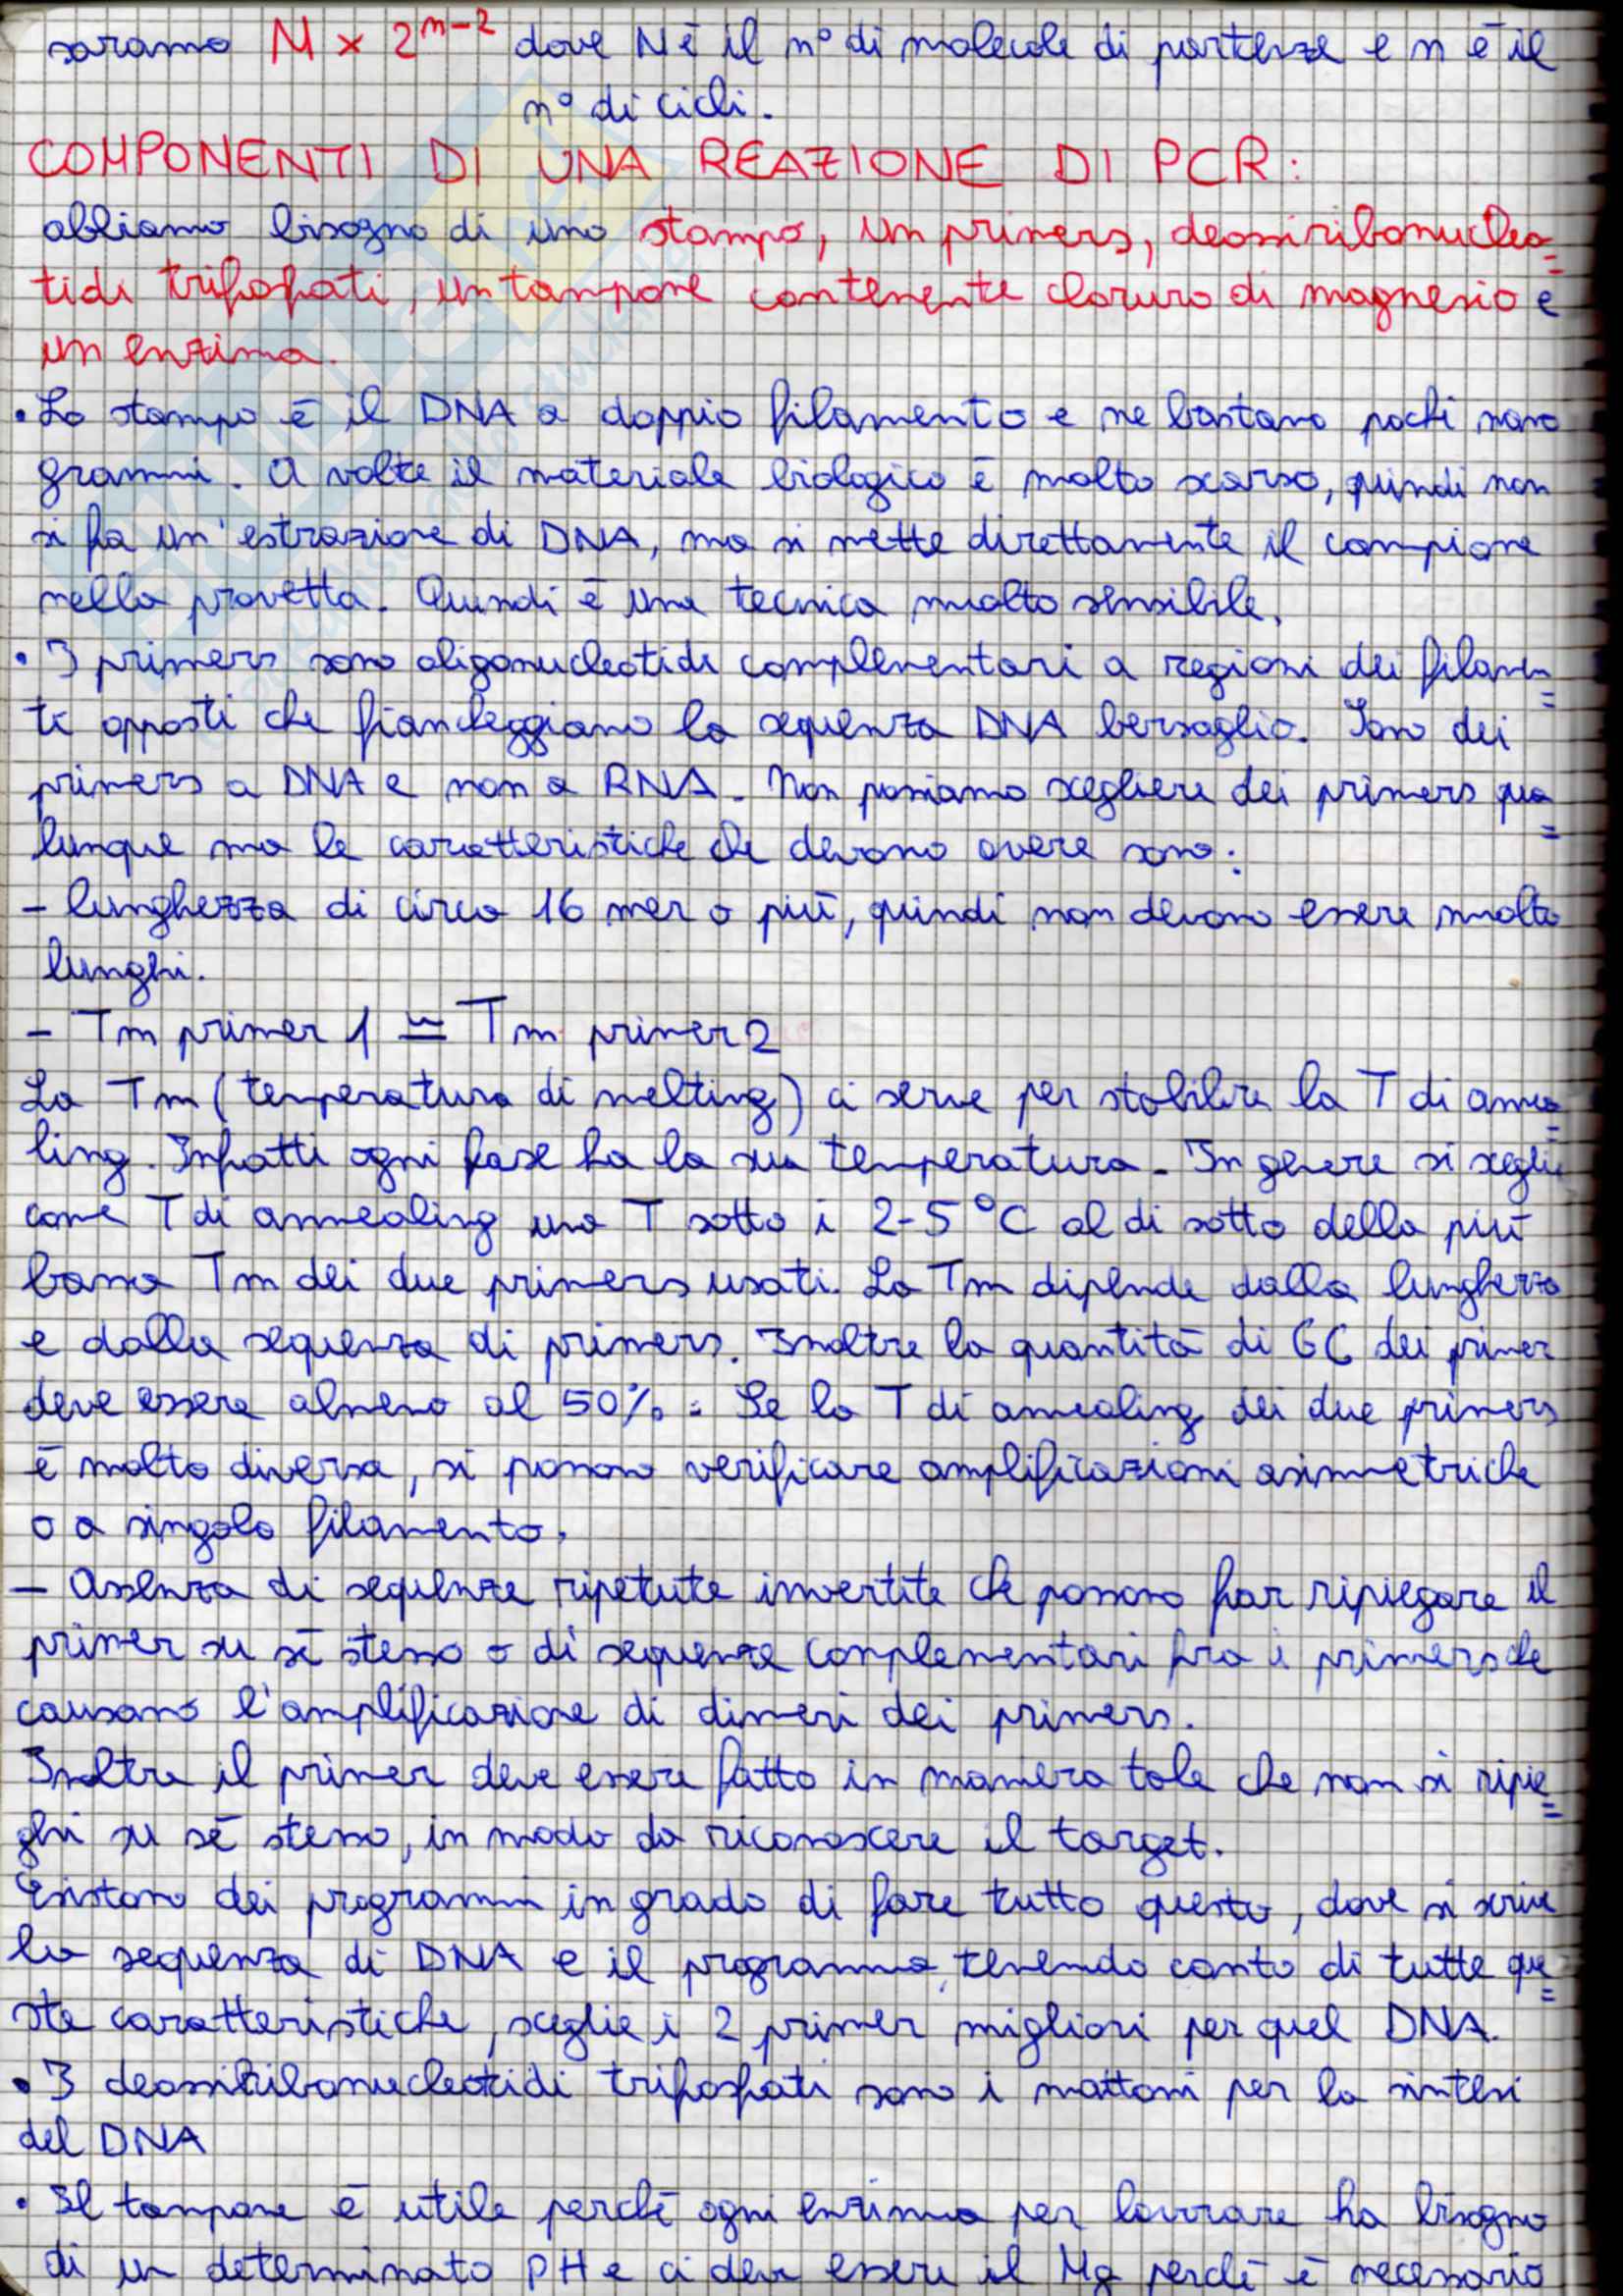 saranno N x 2^n-2 dove N è il n° di molecole di partenza e n è il
n° di cicli.
COMPONENTI DI UNA REAZIONE DI PCR:
abbiamo bisogno di uno stampo, un primers, deossiribonucleo=
tidi trifosfati, un tampone contenente cloruro di magnesio e
un enzima.
• Lo stampo è il DNA a doppio filamento e ne bastano pochi nano
grammi. A volte il materiale biologico è molto scarso, quindi non
si fa un'estrazione di DNA, ma si mette direttamente il campione
nella provetta. Quindi è una tecnica molto sensibile.
• I primers sono oligonucleotidi complementari a regioni dei filamen=
ti opposti che fiancheggiano la sequenza DNA bersaglio. Sono dei
primers a DNA e non a RNA. Non possiamo scegliere dei primers qua=
lunque ma le caratteristiche che devono avere sono:
- lunghezza di circa 16 mer o più, quindi non devono essere molto
lunghi.
- Tm primer 1 ≃ Tm primer 2
La Tm (temperatura di melting) ci serve per stabilire la T di annea=
ling. Infatti ogni fase ha la sua temperatura. In genere si sceglie
come T di annealing una T sotto i 2-5 °C al di sotto della più
bassa Tm dei due primers usati. La Tm dipende dalla lunghezza
e dalla sequenza di primers. Inoltre la quantità di GC dei primer
deve essere almeno al 50%. Se la T di annealing dei due primers
è molto diversa, si possono verificare amplificazioni asimmetriche
o a singolo filamento.
- Assenza di sequenze ripetute invertite che possono far ripiegare il
primer su sé stesso o di sequenze complementari fra i primers che
causano l'amplificazione di dimeri dei primers.
Inoltre il primer deve essere fatto in maniera tale che non si ripie=
ghi su sé stesso, in modo da riconoscere il target.
Esistono dei programmi in grado di fare tutto questo, dove si scrive
la sequenza di DNA e il programma, tenendo conto di tutte que=
ste caratteristiche, sceglie i 2 primer migliori per quel DNA.
• I deossiribonucleotidi trifosfati sono i mattoni per la sintesi
del DNA
• Il tampone è utile perché ogni enzima per lavorare ha bisogno
di un determinato PH e ci deve essere il Mg perché è necessario